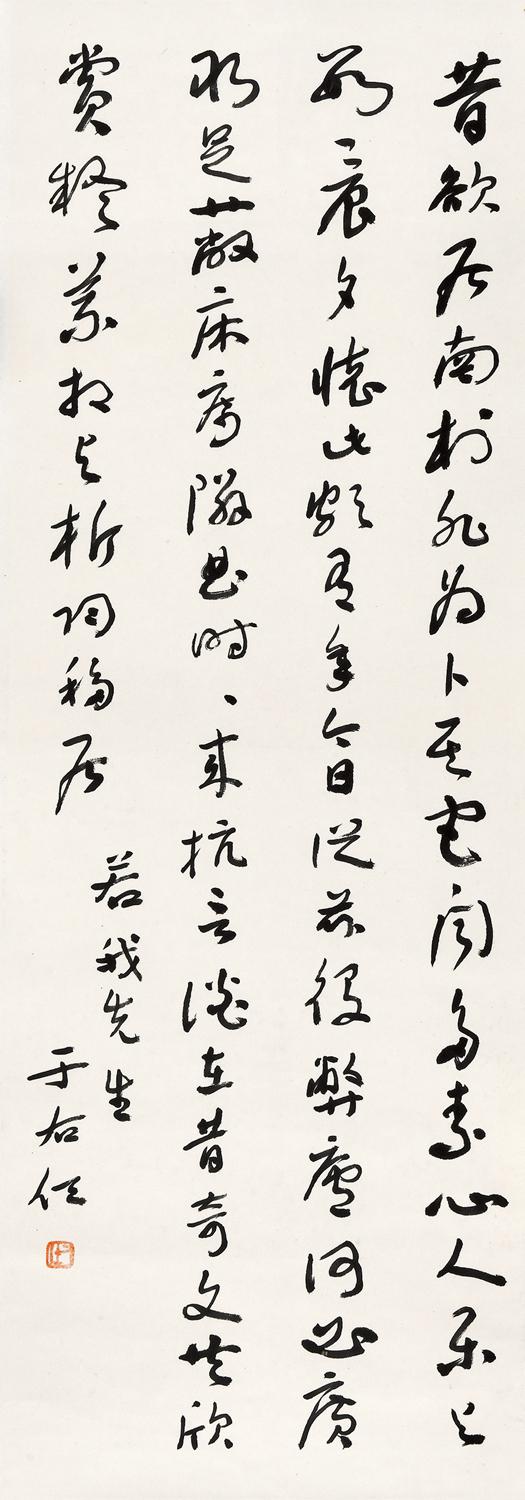 昔欲居南村非為卜其宅聞多素心人樂与
數晨夕懷此頗有年今日從茲役弊廬何必廣
取足蔽床席鄰曲時、來抗言談在昔奇文共欣
賞疑義相与析陶移居
若我先生
于右任